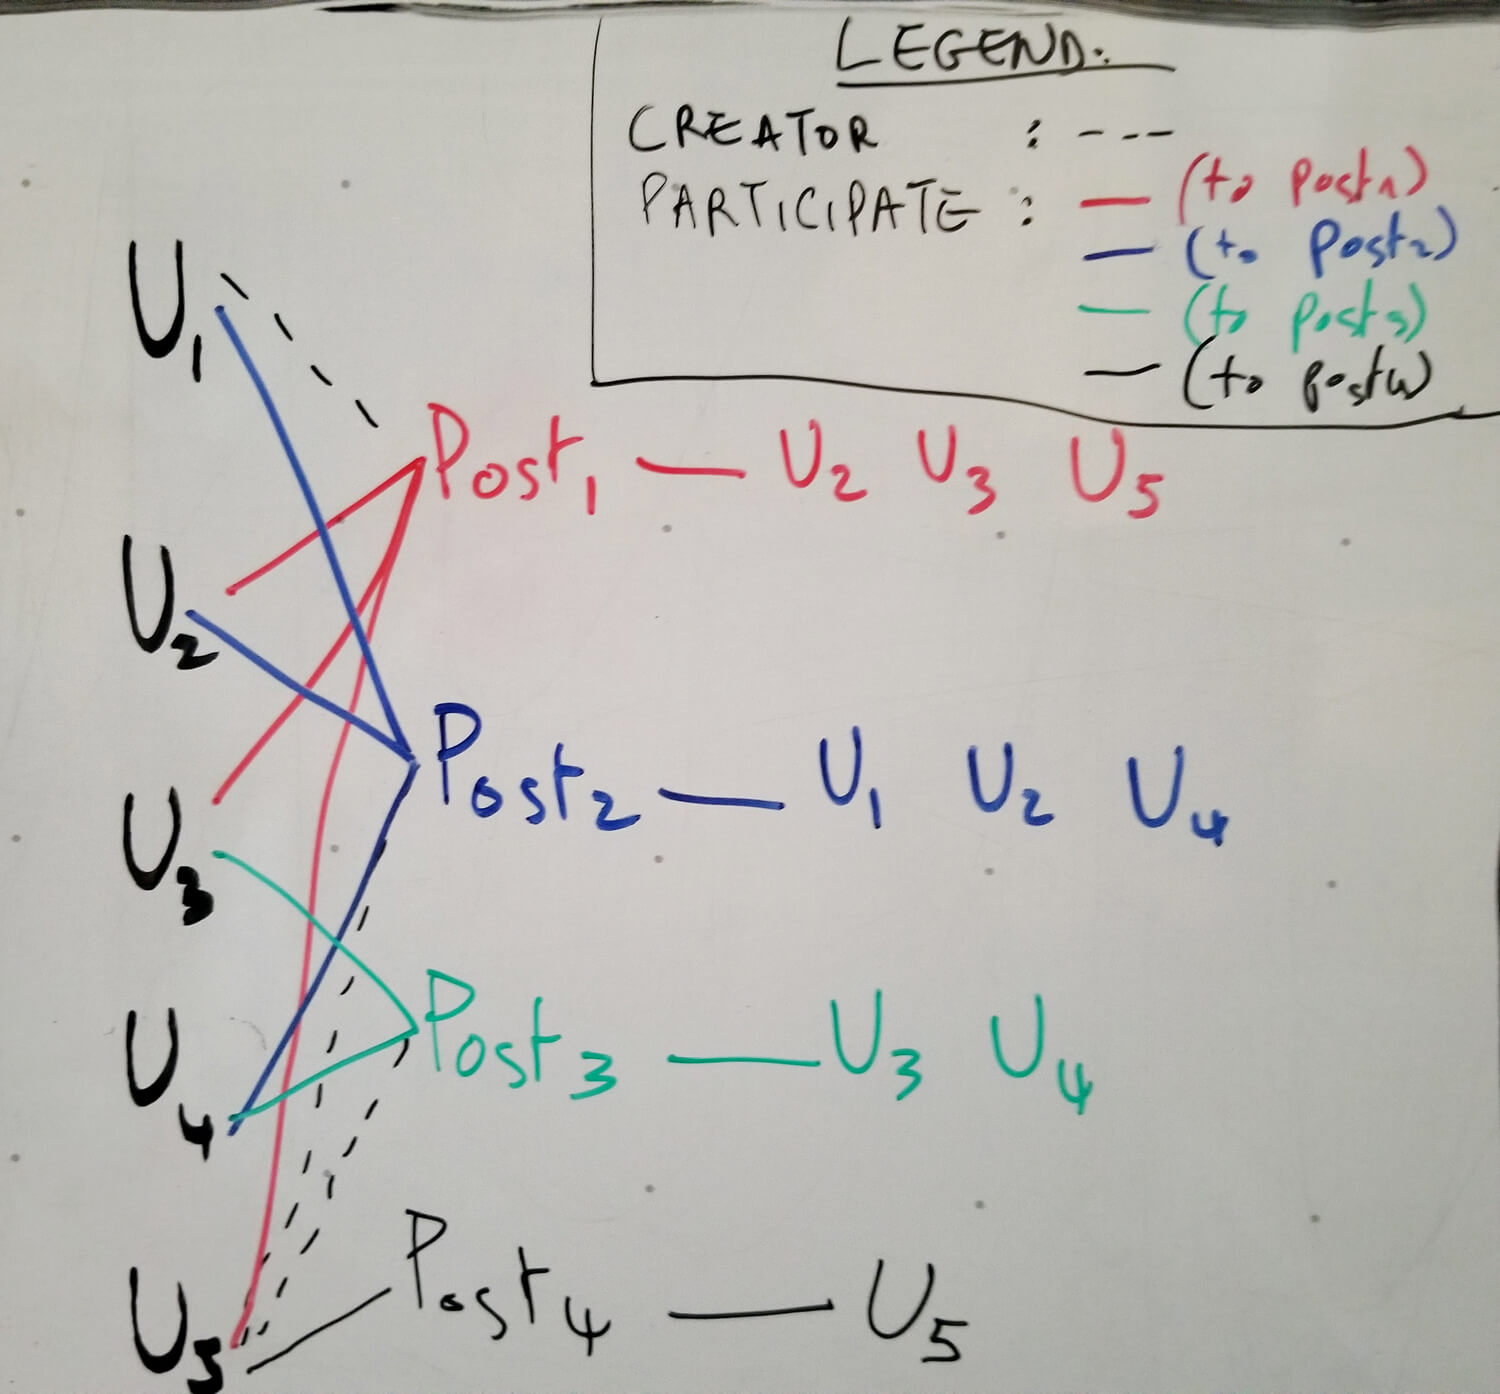 LEGEND:
CREATOR : ---
PARTICIPATE : — (to post1)
— (to Post2)
— (to Post3)
— (to post4)
U1
Post1 — U2 U3 U5
U2
Post2 — U1 U2 U4
U3
Post3 — U3 U4
U4
Post4 — U5
U5